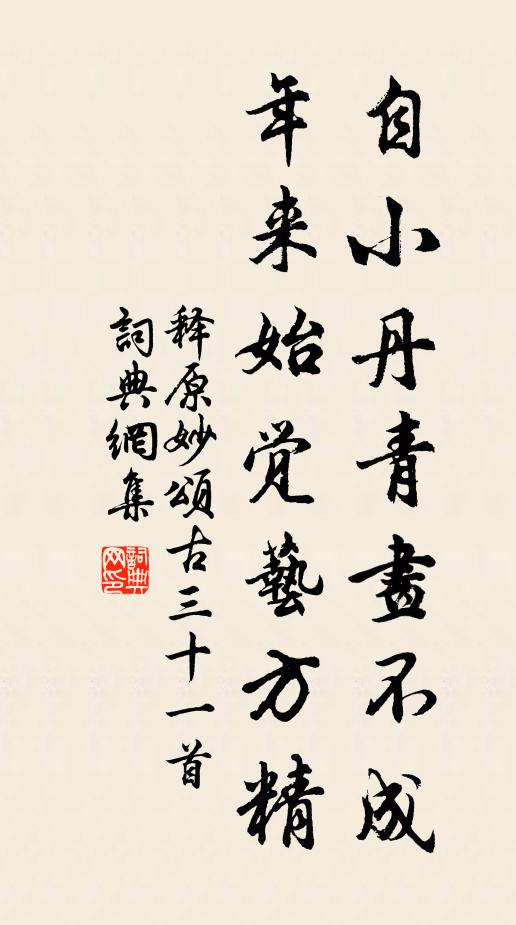 自小丹青畫不成
年来始觉藝方精
释原妙頌古三十一首
詞典網集
詞典网印